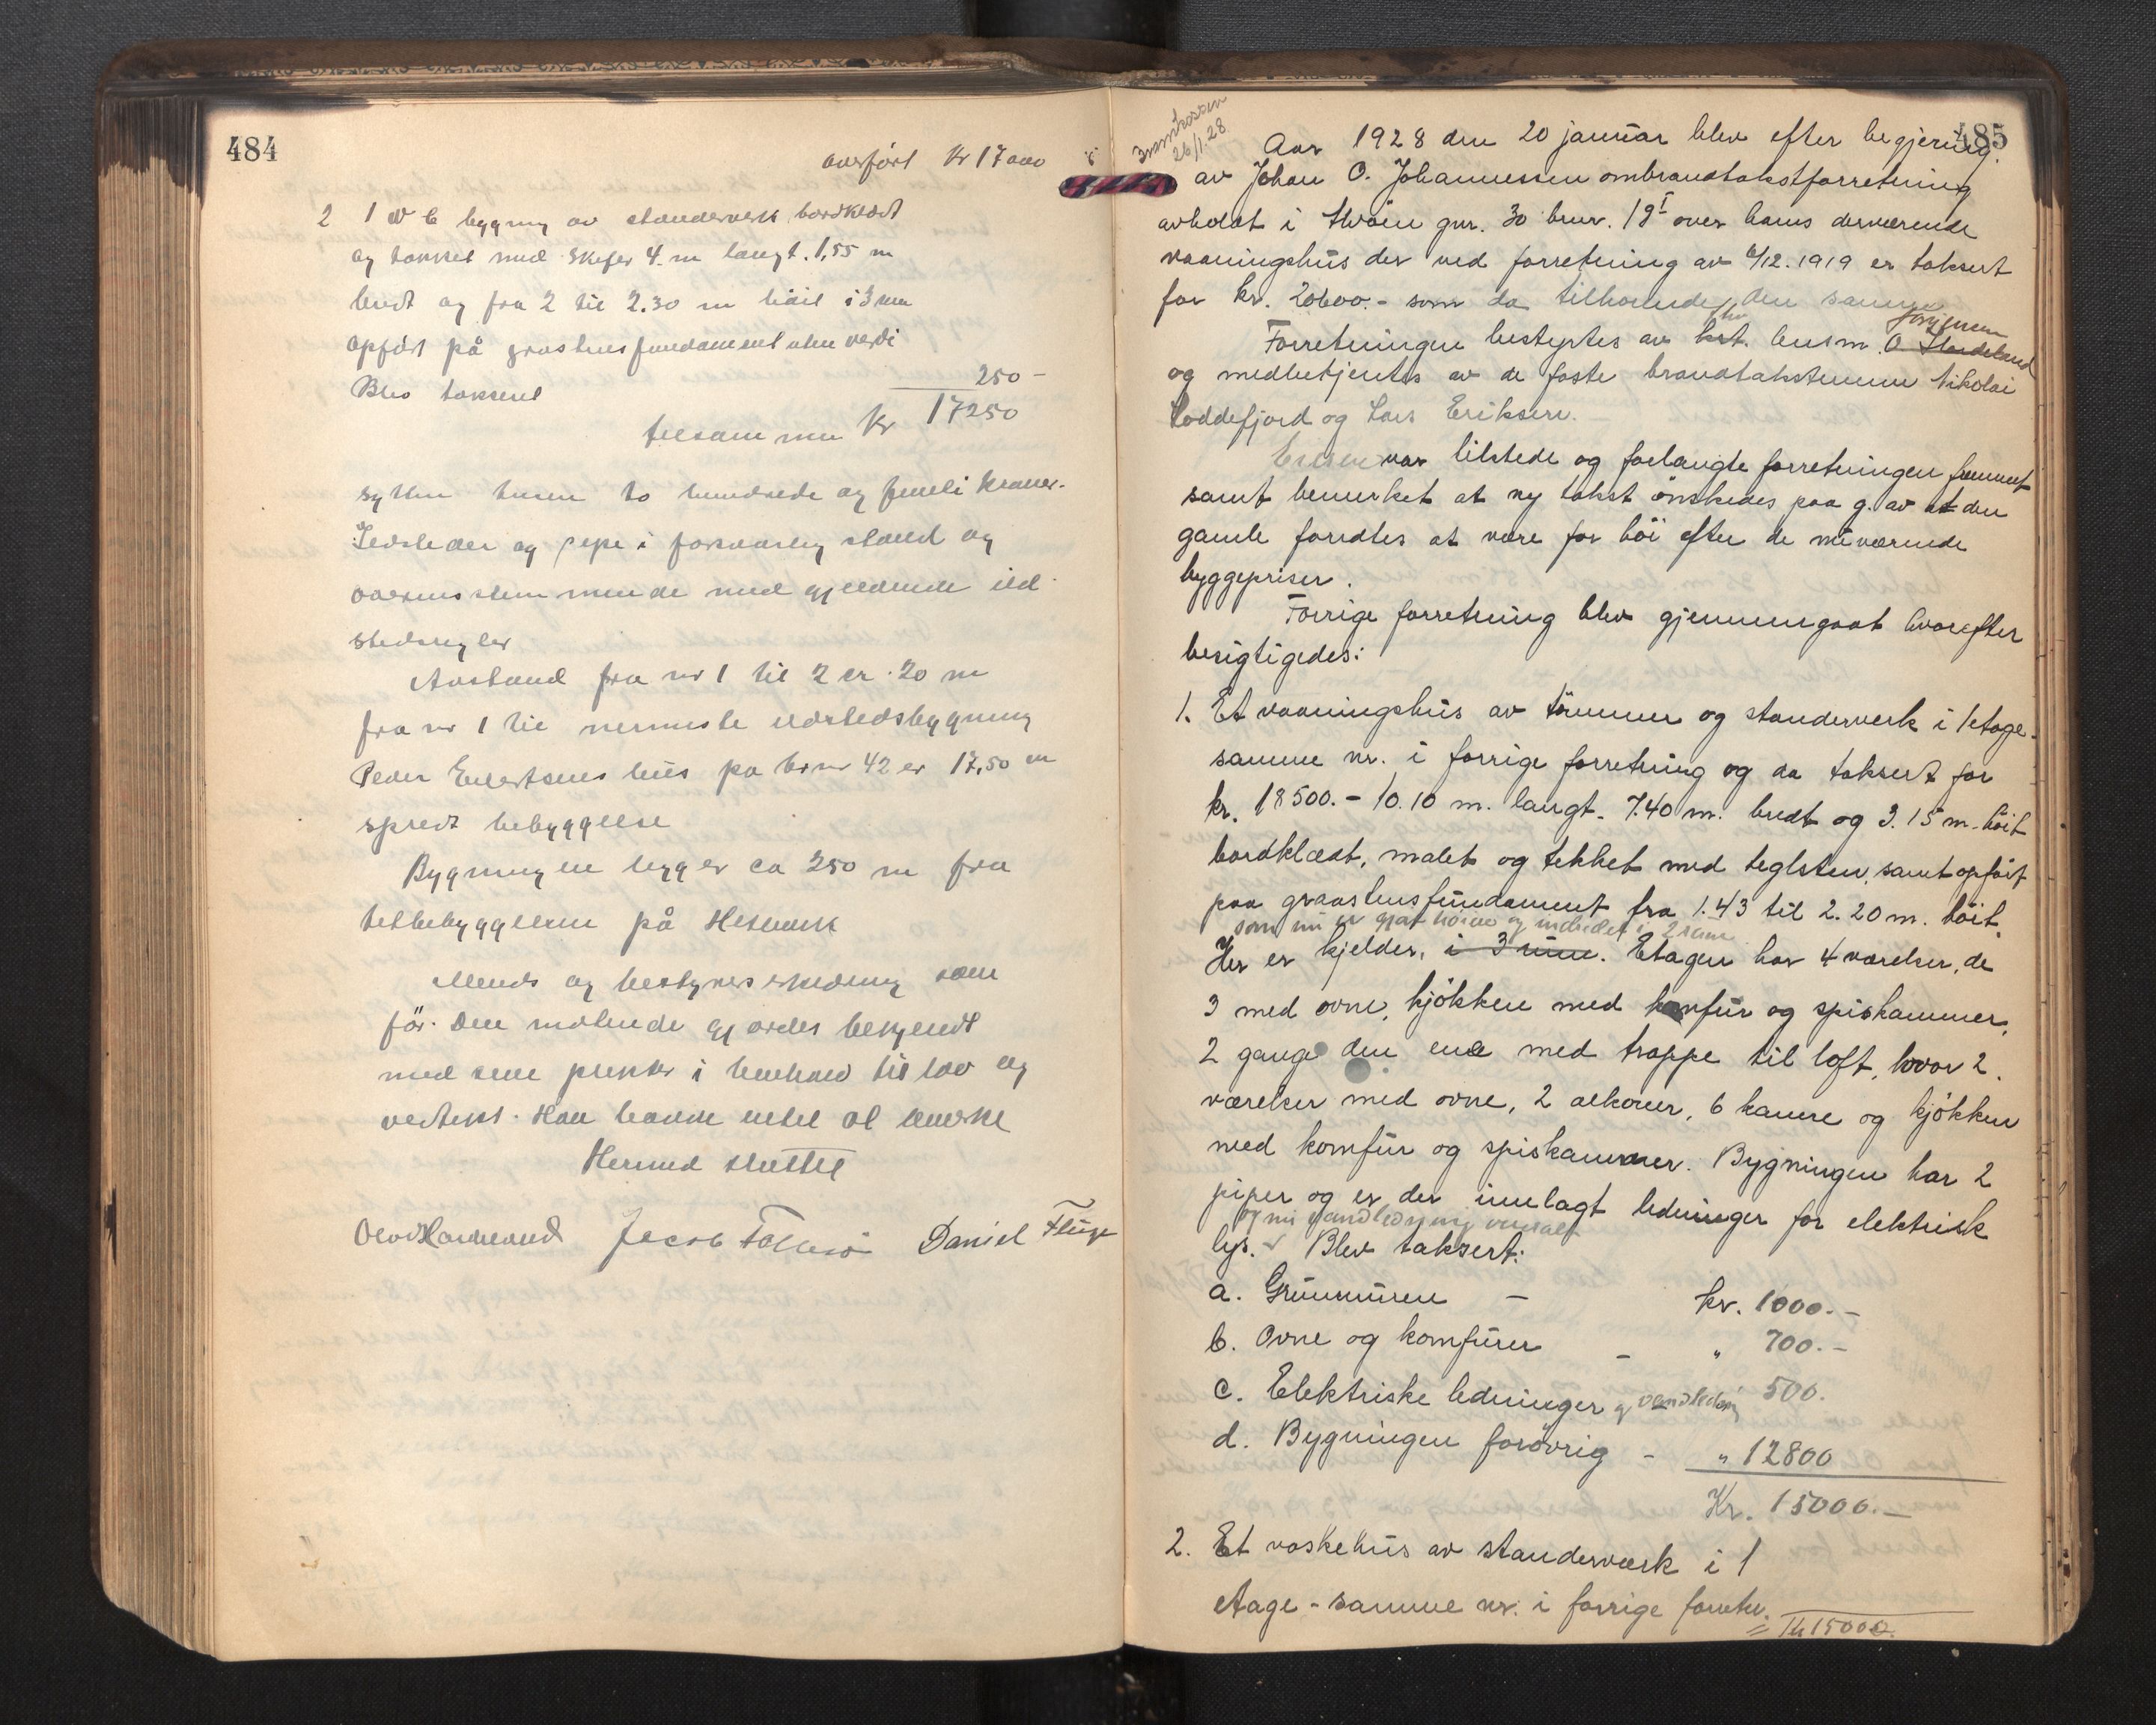 484
overført Kr 17000
2 1 W C bygning av standerverk bordklædt
og tækket med skifer 4 m langt. 1,55 m
bredt og fra 2 til 2.30 m høit i 3 rum
opført på grastensfundament uten verdi
Blev taksert 250 -
tilsammen Kr 17250
sytten tusen to hundrede og femti kroner.
Ildsteder og pipe i forsvarlig stand og
overensstemmende med gjeldende ild
stedsregler
Avstand fra nr 1 til 2 er 20 m
fra nr 1 til nermeste ildstedsbygning
Peder Evertsens hus på brnr 42 er 17,50 m
spredt bebyggelse
Bygningene ligger ca 250 m fra
tetbebyggelsen på
og bestyrers som
før. Den møtende gjordes bekjendt
med sine plikter i henhold til lov og
vedtekt. Han havde intet at bemerke
Hermed sluttet
Olav Hardeland Jacob Daniel
485
26/1.28
Aar 1928 den 20 januar blev efter begjering
av Johan O. Johannessen ombrandtakstforretning
avholdt i gnr. 30 brnr. 19 over hans derværende
vaaningshus der ved forretning av 6/12.1919 er taksert
for kr. 20600.- som da tilhørende den samme
Forretningen bestyrtes av kst. lensm. O Hardeland
og medbetjentes av de faste brandtakstmenn Nikolai
Loddefjord og Lars Eriksen.
Eieren var tilstede og forlangte forretningen fremmet
samt bemerket at ny takst ønskedes paa g. av at den
gamle fandtes at være for høi efter de nuværende
byggepriser.
Forrige forretning blev gjennemgaat hvorefter
besigtigedes:
1. Et vaaningshus av tømmer og standerverk i 1 etage.
samme nr. i forrige forretning og da taksert for
kr. 18500.- 10.10 m. langt. 7.40 m. bredt og 3.15 m. høit
bordklædt, malet og tekket med teglsten, samt opført
paa graastensfundament fra 1.43 til 2.20 m. høit.
som nu er gjort høiere og indredet i 2 rum
Her er kjelder, i 3 rum. Etagen har 4 værelser, de
3 med ovne, kjøkken med komfur og spiskammer,
2 gange den ene med trappe til loft, hvor 2
værelser med ovne, 2 alkover, 6 kamre og kjøkken
med komfur og spiskammer. Bygningen har 2
piper og er der innlagt ledninger for elektrisk
og nu vandledning innlagt
lys. Blev taksert:
a. Grunmuren - kr. 1000.-
b. Ovne og komfurer - " 700.-
c. Elektriske ledninger og vandledning 500.
d. Bygningen forøvrig - " 12800
Kr. 15000.-
2. Et vaskehus av standerværk i 1
etage - samme nr. i forrige forretn.
15000.